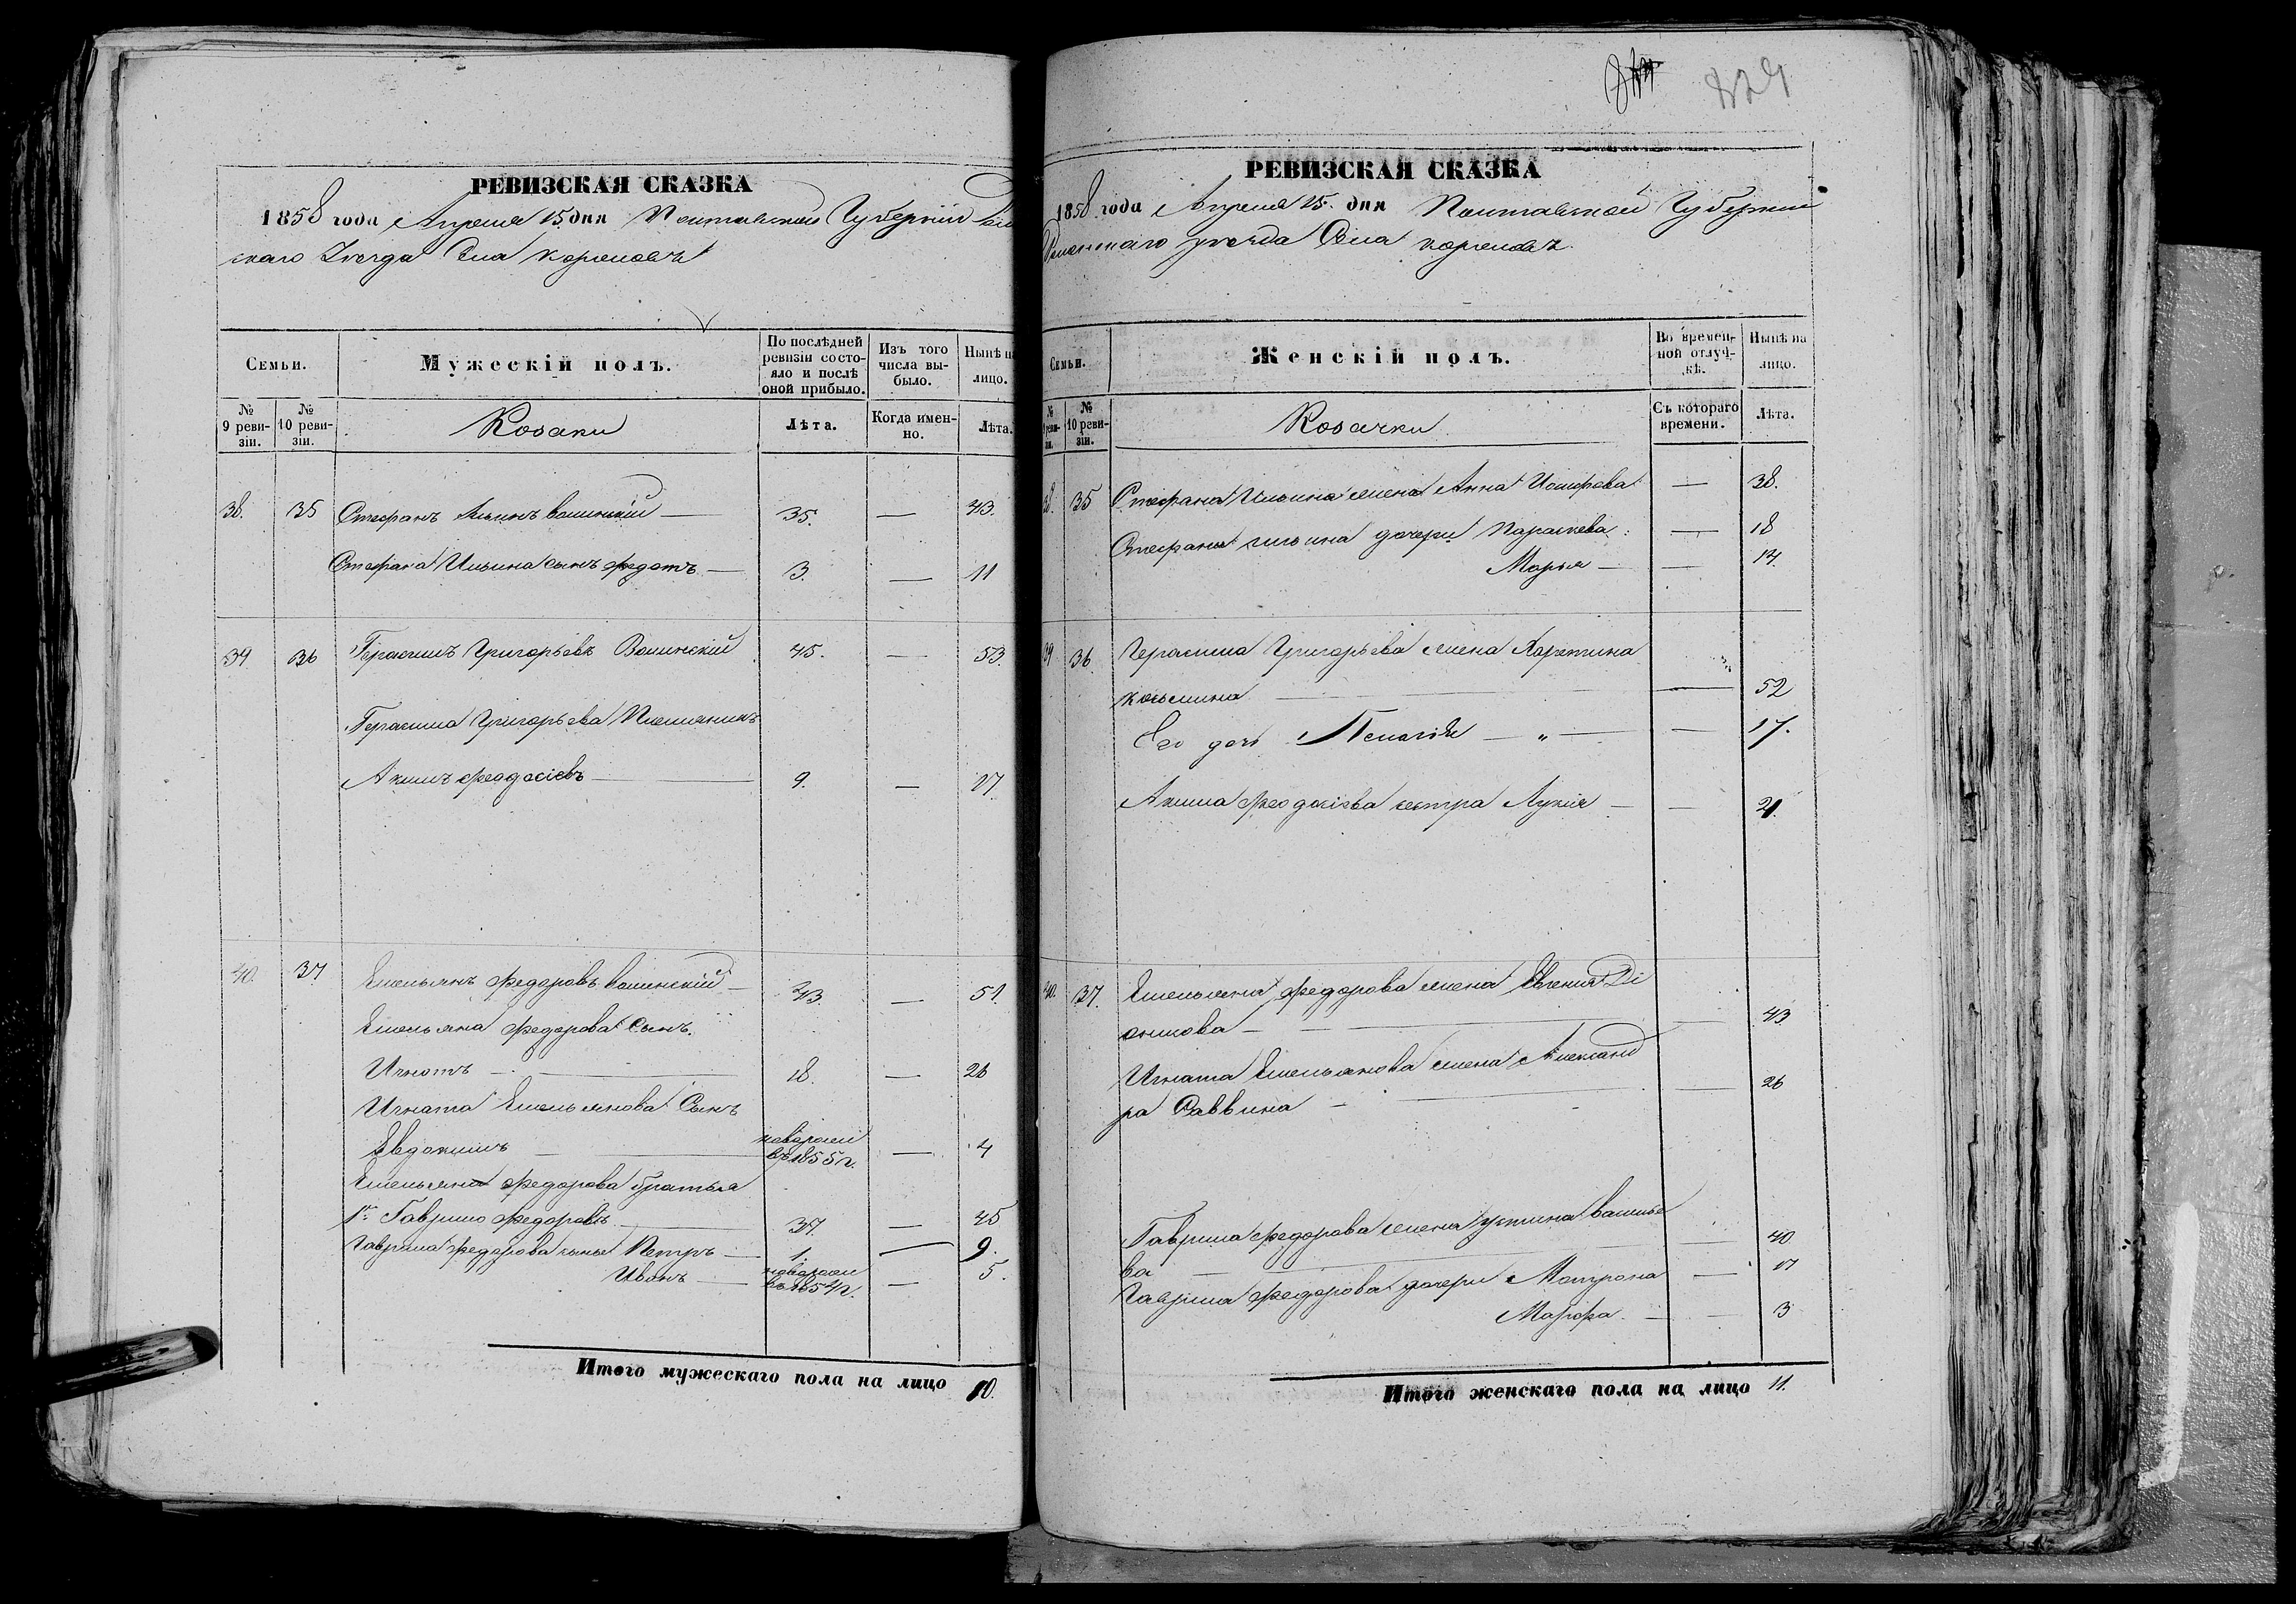 РЕВИЗСКАЯ СКАЗКА
1858 года Апреля 15 дня Полтавской Губернии
скаго Уезда Села
Семьи.
Мужескій полъ.
По послѣдней ревизіи состояло и послѣ оной прибыло.
Изъ того числа выбыло.
Нынѣ на лицо.
№ 9 ревизіи.
№ 10 ревизіи.
Козаки
Лѣта.
Когда именно.
Лѣта.
38. 35 Стефанъ Ильинъ Волинскій — 35. — 43.
Стефана Ильина сынъ Федотъ — 3. — 11
39 36 Герасимъ Григорьевъ Волинскій 45. — 53.
Герасима Григорьева Племянникъ
Акимъ Феодосіевъ — 9. — 17.
40. 37 Емельянъ Федоровъ Волинскій — 43. — 51.
Емельяна Федорова Сынъ.
Игнатъ — 18. — 26
Игната Емельянова Сынъ
Евдокимъ — новорожд въ 1855 г. — 4
Емельяна Федорова братья
1й Гаврило Федоровъ — 37. — 45
Гаврила Федорова сынья Петръ — 1. — 9.
Иванъ — новорожд въ 1854 г. — 5.
Итого мужескаго пола на лицо 10.
РЕВИЗСКАЯ СКАЗКА
1858 года Апреля 15. дня Полтавской Губернии
уезда Села
Семьи.
Женскій полъ.
Во временной отлучкѣ.
Нынѣ на лицо.
№ 10 ревизіи.
Козачки
Съ котораго времени.
Лѣта.
38. 35 Стефана Ильина жена Анна — 38.
Стефана Ильина дочери Параскева — 18
Марья — — 14.
39 36. Герасима Григорьева жена Харитина
— — 52
Его дочь Пелагія — „ — — 17.
Акима Феодосіева сестра Лукія — — 21.
40. 37. Емельяна Федорова жена Евгенія Ді
онисова — — 43
Игната Емельянова жена Александ
ра Саввина — — 26
Гаврила Федорова жена Устина Василье
ва — 40
Гаврила Федорова дочери Мотрона — 17
Марфа. — — 3
Итого женскаго пола на лицо 11.